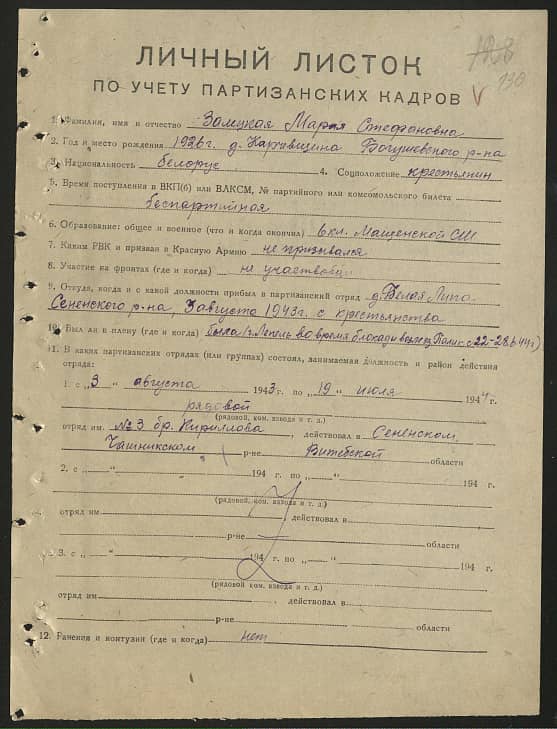 130
ЛИЧНЫЙ ЛИСТОК
ПО УЧЕТУ ПАРТИЗАНСКИХ КАДРОВ
1. Фамилия, имя и отчество Замуная Мария Стефановна
2. Год и место рождения 1926 г. д. Богушевского р-на
3. Национальность белорус 4. Соцположение крестьянин
5. Время поступления в ВКП(б) или ВЛКСМ, № партийного или комсомольского билета
беспартийная
6. Образование: общее и военное (что и когда окончил) 6 кл. Мащенской СШ
7. Каким РВК и призван в Красную Армию не призывался
8. Участие на фронтах (где и когда) не участвовал
9. Откуда, когда и с какой должности прибыл в партизанский отряд д. Белая Липа
Сененского р-на, 3 августа 1943 г. с крестьянства
10. Был ли в плену (где и когда) была в г. Лепель во время блокады с 22-28.6.44 г)
11. В каких партизанских отрядах (или группах) состоял, занимаемая должность и район действия
отряда:
1. с „3" августа 1943 г. по „19" июля 1944 г.
рядовой
(рядовой, ком. взвода и т. д.)
отряд им. №3 бр. Кириллова, действовал в Сененском,
Чашникском р-не Витебской области
2. с „ " 194 г. по „ " 194 г.
(рядовой, ком. взвода и т. д.)
отряд им. действовал в
р-не области
3. с „ " 194 г. по „ " 194 г.
(рядовой ком. взвода и т. д.)
отряд им. действовал в
р-не области
12. Ранения и контузии (где и когда) нет